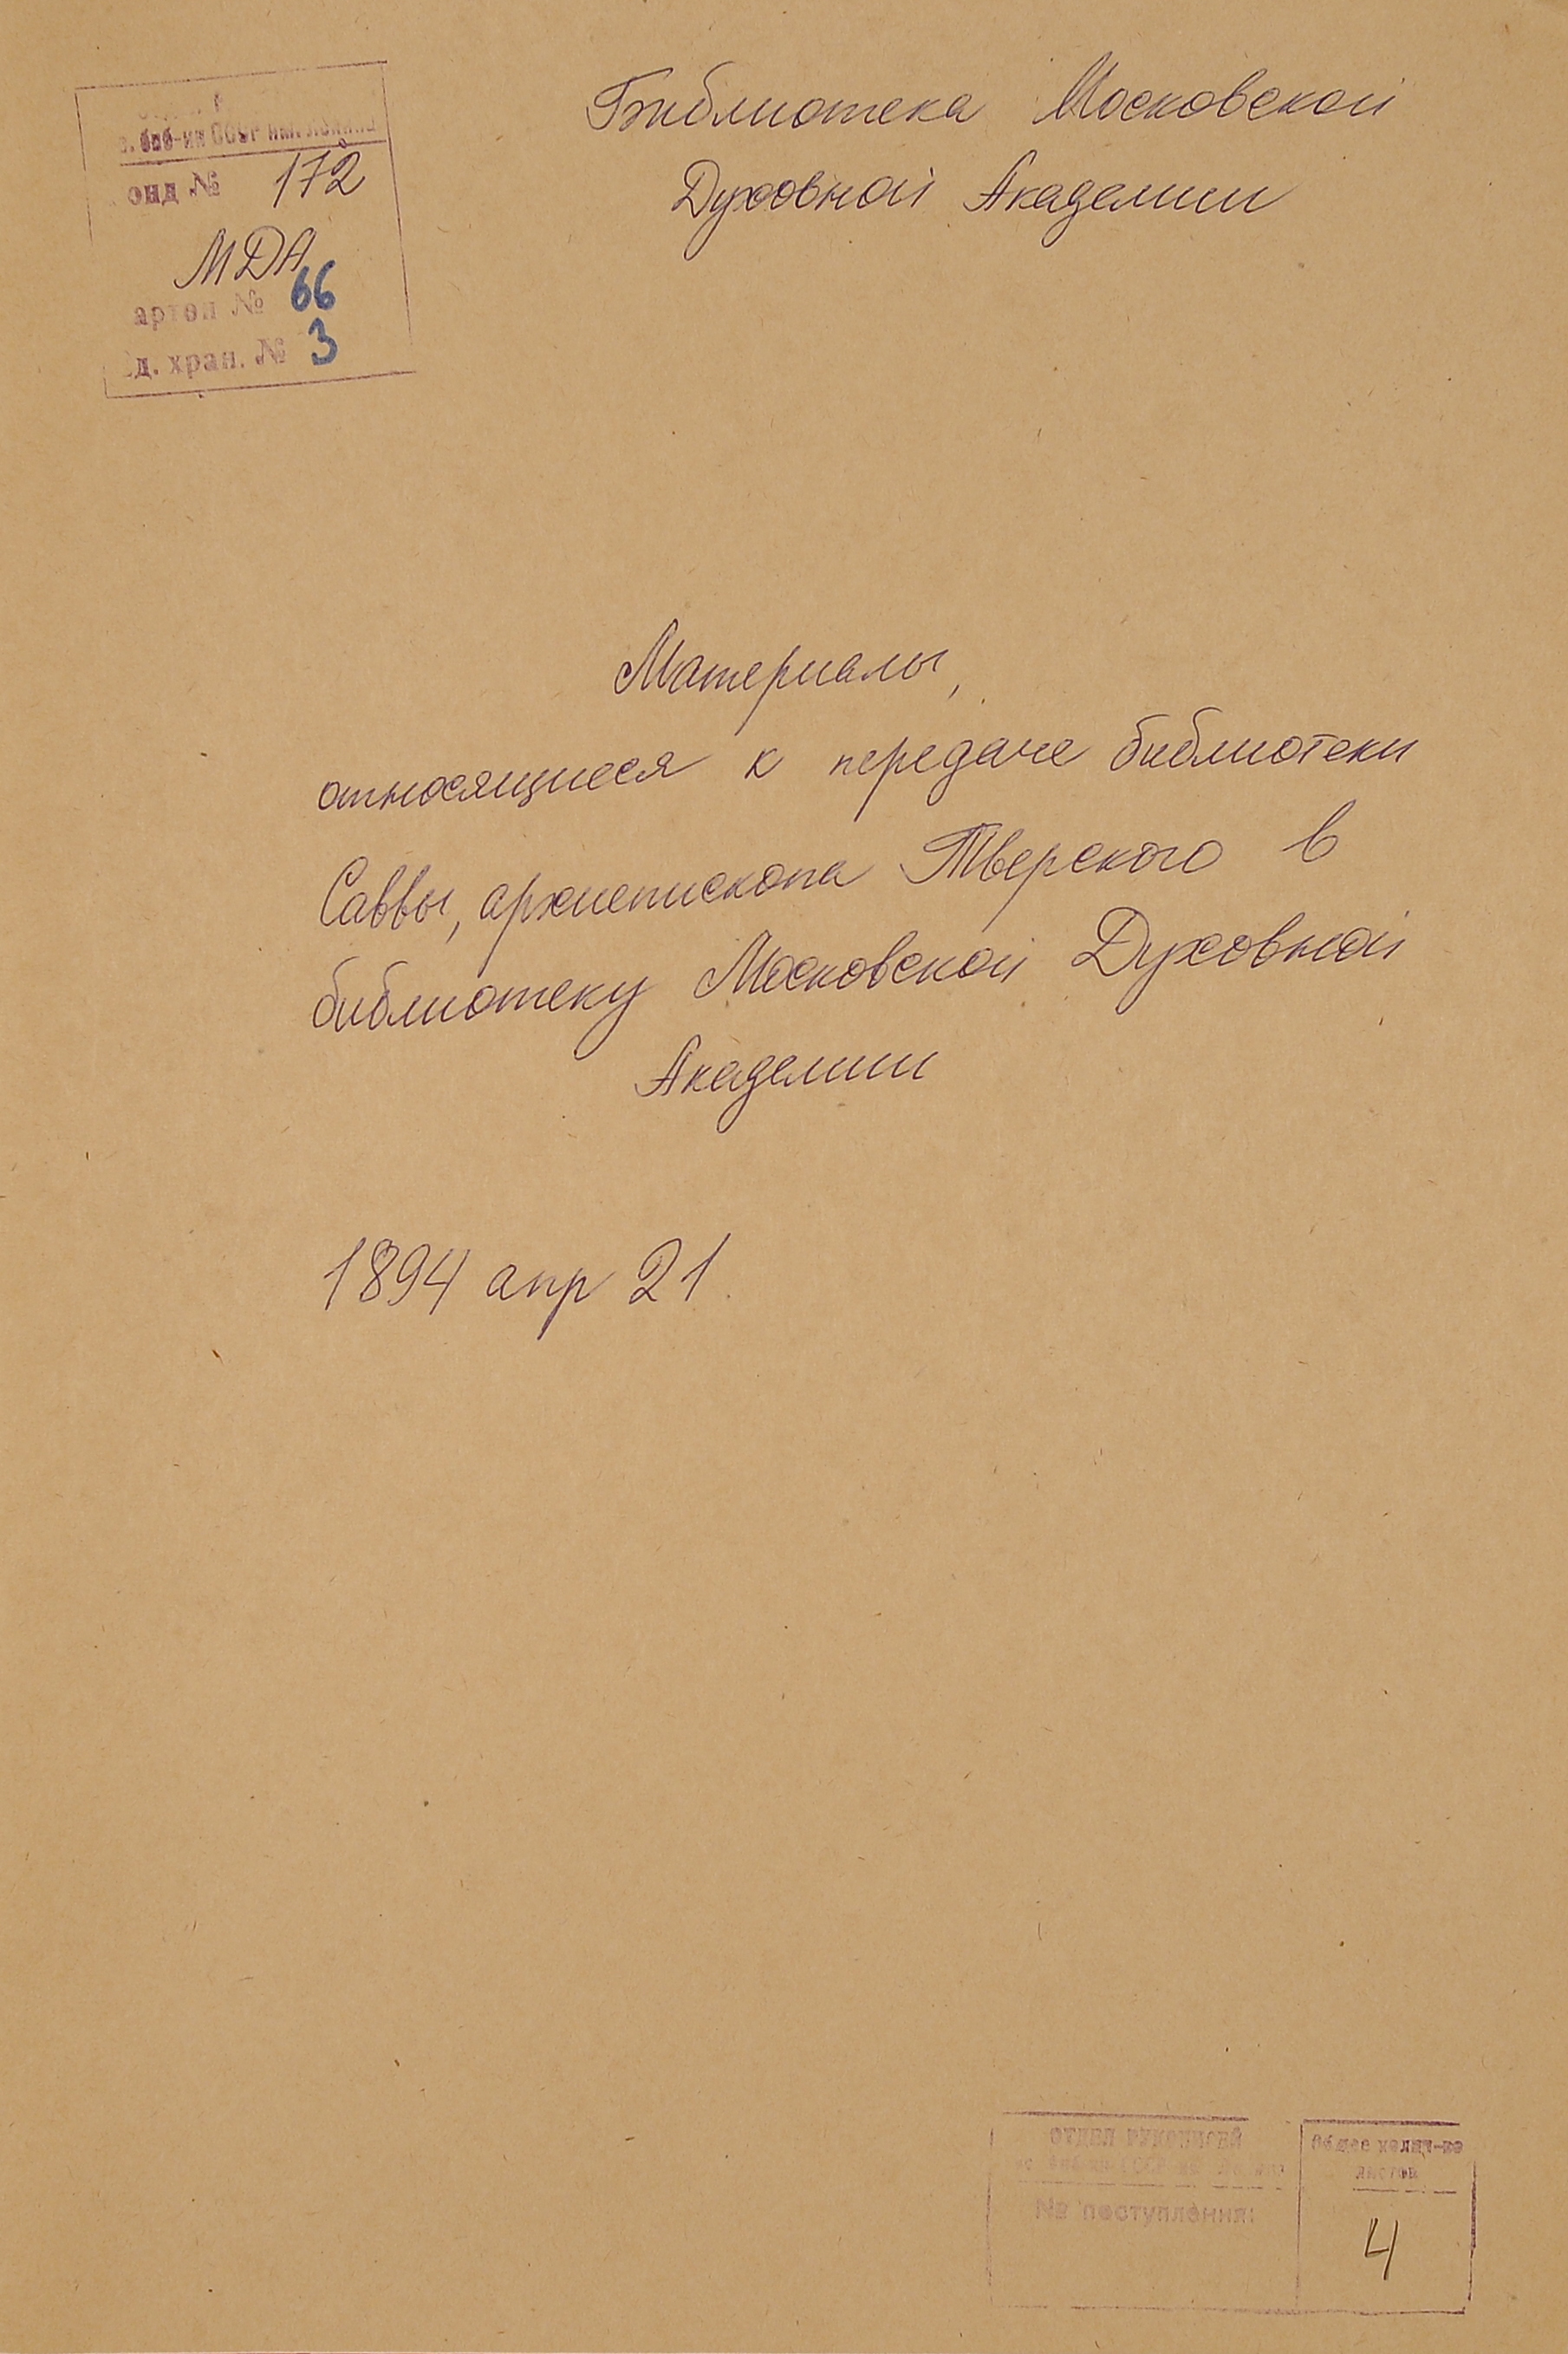 Библиотека Московской
Духовной Академии
с. биб-ки СССР им. Ленина
онд № 172
МДА
артон № 66
Ед. хран. № 3
Материалы,
относящиеся к передаче библиотеки
Саввы, архиепископа Тверского в
библиотеку Московской Духовной
Академии
1894 апр 21.
ОТДЕЛ РУКОПИСЕЙ
СССР
№ поступления:
Общее колич-во
листов
4